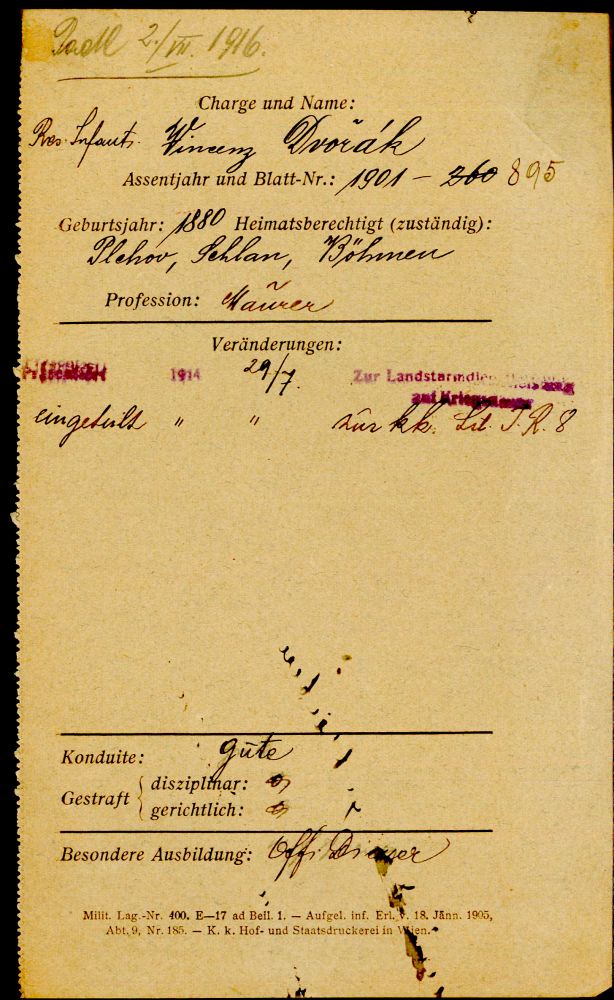 2./VII. 1916.
Charge und Name:
Res. Infant. Vincenz Dvořák
Assentjahr und Blatt-Nr.: 1901 – 260 895
Geburtsjahr: 1880 Heimatsberechtigt (zuständig):
Plchov, Schlan, Böhmen
Profession: Maurer
Veränderungen:
Präsentiert 1914 29/7. Zur Landsturmdienstleistung
auf Kriegsdauer
eingeteilt " " zur kk. Ld. I. R. 8
Konduite: gute
Gestraft { disziplinar: 0
gerichtlich: 0
Besondere Ausbildung: Offi Diener
Milit. Lag.-Nr. 400. E—17 ad Beil. 1. — Aufgel. inf. Erl. v. 18. Jänn. 1905,
Abt. 9, Nr. 185. — K. k. Hof- und Staatsdruckerei in Wien.